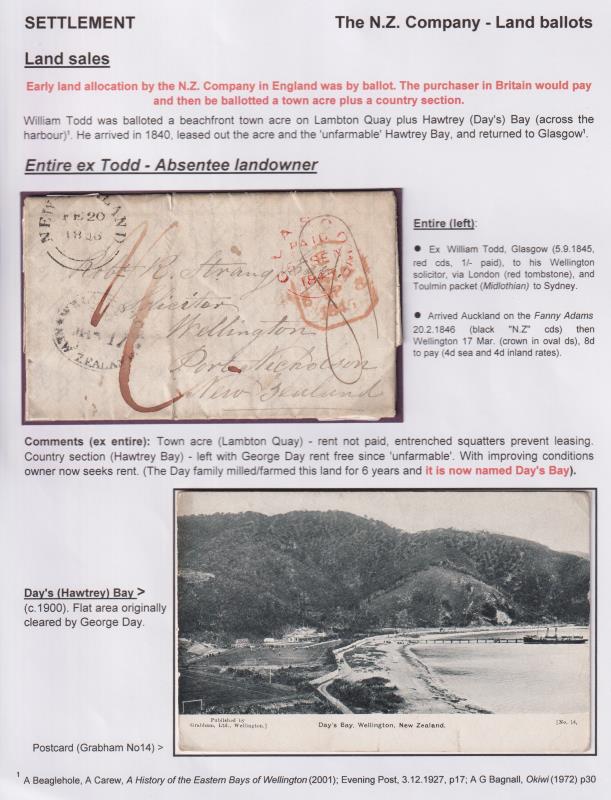 SETTLEMENT The N.Z. Company - Land ballots
Land sales
Early land allocation by the N.Z. Company in England was by ballot. The purchaser in Britain would pay
and then be ballotted a town acre plus a country section.
William Todd was balloted a beachfront town acre on Lambton Quay plus Hawtrey (Day's) Bay (across the
harbour)¹. He arrived in 1840, leased out the acre and the 'unfarmable' Hawtrey Bay, and returned to Glasgow¹.
Entire ex Todd - Absentee landowner
NEW ZEALAND
FE 20
1846
GLASGOW
PAID
SE
1845
1845
R. Strang
Solicitor
Wellington
Port Nicholson
New Zealand
NEW ZEALAND
Entire (left):
● Ex William Todd, Glasgow (5.9.1845,
red cds, 1/- paid), to his Wellington
solicitor, via London (red tombstone), and
Toulmin packet (Midlothian) to Sydney.
● Arrived Auckland on the Fanny Adams
20.2.1846 (black "N.Z" cds) then
Wellington 17 Mar. (crown in oval ds), 8d
to pay (4d sea and 4d inland rates).
Comments (ex entire): Town acre (Lambton Quay) - rent not paid, entrenched squatters prevent leasing.
Country section (Hawtrey Bay) - left with George Day rent free since 'unfarmable'. With improving conditions
owner now seeks rent. (The Day family milled/farmed this land for 6 years and it is now named Day's Bay).
Day's (Hawtrey) Bay >
(c.1900). Flat area originally
cleared by George Day.
Published by
Grabham, Ltd., Wellington.]
Day's Bay, Wellington, New Zealand.
[No. 14.
Postcard (Grabham No14) >
¹ A Beaglehole, A Carew, A History of the Eastern Bays of Wellington (2001); Evening Post, 3.12.1927, p17; A G Bagnall, Okiwi (1972) p30